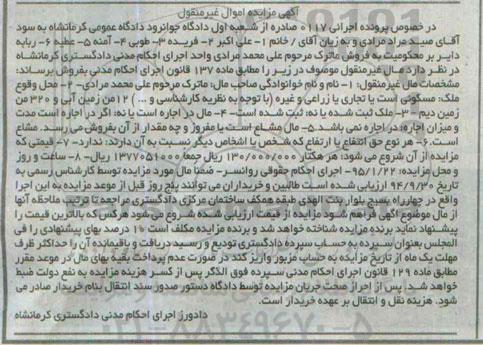 آگهی مزایده اموال غیرمنقول
در خصوص پرونده اجرائی 0117 صادره از شعبه اول دادگاه جوانرود دادگاه عمومی کرمانشاه به سود
آقای صید مراد مرادی و به زیان آقای / خانم 1- علی اکبر 2- فریده 3- طوبی 4- آمنه 5- عطیه 6- ربابه
دایر بر محکومیت به فروش ماترک مرحوم علی محمد مرادی واحد اجرای احکام مدنی دادگستری کرمانشاه
در نظر دارد مال غیرمنقول موصوف در زیر را مطابق ماده 137 قانون اجرای احکام مدنی بفروش برساند:
مشخصات مال غیرمنقول: 1- نام و نام خوانوادگی صاحب مال: ماترک مرحوم علی محمد مرادی- 2- محل وقوع
ملک: مسکونی است یا تجاری یا زراعی و غیره (با توجه به نظریه کارشناسی و ...) 12من زمین آبی و 320 من
زمین دیم- 3- ملک ثبت شده یا نه: ثبت شده است- 4- مال در اجاره است یا نه: اگر در اجاره است مدت
و میزان اجاره: در اجاره نمی باشد 5- مال مشاع است یا مفروز و چه مقدار از آن بفروش می رسد. مشاع
است.6- هر نوع حق انتفاع یا ارتفاع که شخص یا اشخاص دیگر نسبت به آن دارند: ندارد-7- قیمتی که
مزایده از آن شروع می شود: هر هکتار 130/000/000 ریال جمعا 1377051000 ریال- 8- ساعت و روز
و محل مزایده: 95/1/22- اجرای احکام حقوقی روانسر- ضمنا مال مورد مزایده توسط کارشناس رسمی به
تاریخ 94/9/30 ارزیابی شده است طالبین و خریداران می توانند پنج روز قبل از موعد مزایده به این اجرا
واقع در چهارراه بسیج بلوار بنت الهدی طبقه همکف ساختمان مرکزی دادگستری مراجعه تا ترتیب ملاحظه آنها
از مال موضوع آگهی فراهم شود مزایده از قیمت ارزیابی شده شروع می شود هرکس که بالاترین قیمت را
پیشنهاد نماید برنده مزایده شناخته خواهد شد و برنده مزایده مکلف است 10 درصد بهای پیشنهادی را فی
المجلس بعنوان سپرده به حساب سپرده دادگستری تودیع و رسید دریافت و باقیمانده آن را حداکثر ظرف
مهلت یک ماه از تاریخ مزایده به حساب مزبور واریز کند در صورت عدم پرداخت بقیه بهای مال در موعد مقرر
مطابق ماده 129 قانون اجرای احکام مدنی سپرده فوق الذکر پس از کسر هزینه مزایده به نفع دولت ضبط
خواهد شد. پس از احراز صحت جریان مزایده توسط دادگاه دستور صدور سند انتقال بنام خریدار صادر می
شود. هزینه نقل و انتقال بر عهده خریدار است.
دادورز اجرای احکام مدنی دادگستری کرمانشاه
021-88349670-5